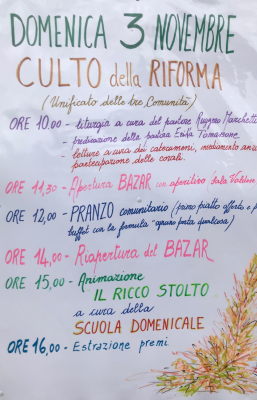 DOMENICA 3 NOVEMBRE
CULTO della RIFORMA
(Unificato delle tre Comunità)
ORE 10.00 - liturgia a cura del pastore Ruggero Marchetti
- predicazione della pastora Erika Tomassone
- letture a cura dei catecumeni, insediamento anziani
partecipazione delle corali.
ORE 11,30 - Apertura BAZAR con aperitivo Sala Valdese
ORE 12,00 - PRANZO comunitario (primo piatto offerto e
buffet con la formula "ognuno porta qualcosa")
ORE 14,00 - Riapertura del BAZAR
ORE 15,00 - Animazione
IL RICCO STOLTO
a cura della
SCUOLA DOMENICALE
ORE 16,00 - Estrazione premi